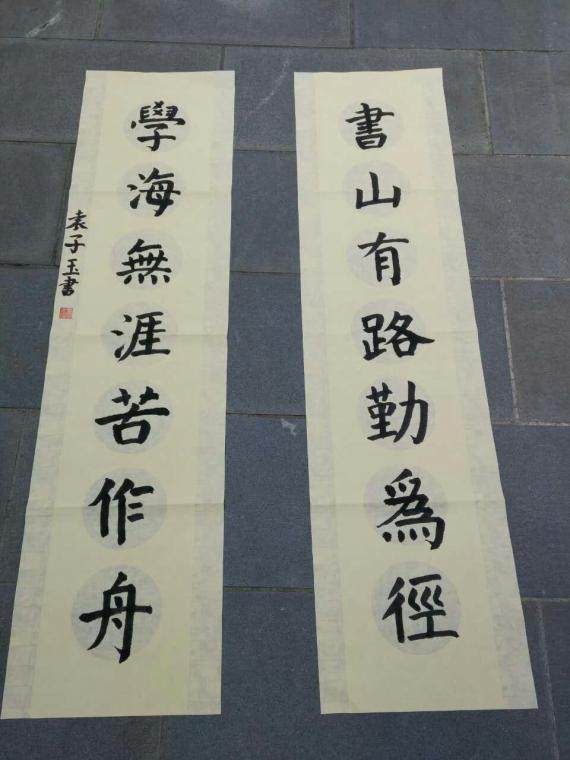 書山有路勤為徑
學海無涯苦作舟
袁子玉書